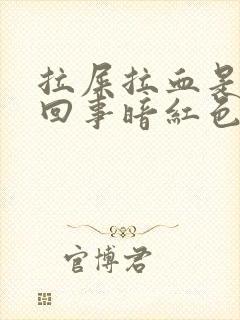 拉屎拉血是
回事暗红色
官博君